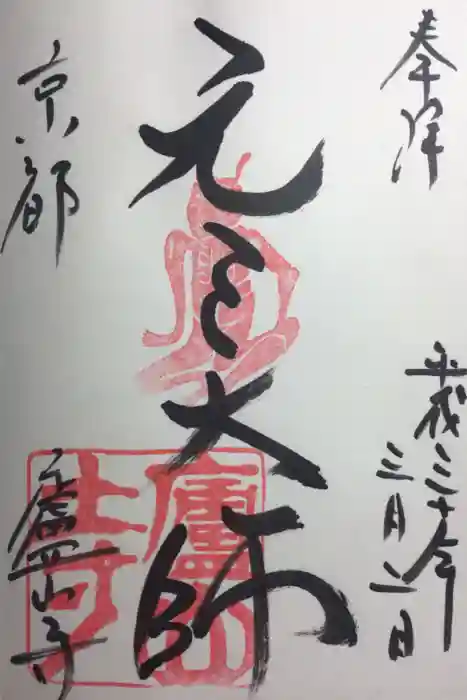 奉拝
平成三十年
三月二日
元三大師
京都
廬山寺
廬山
寺印